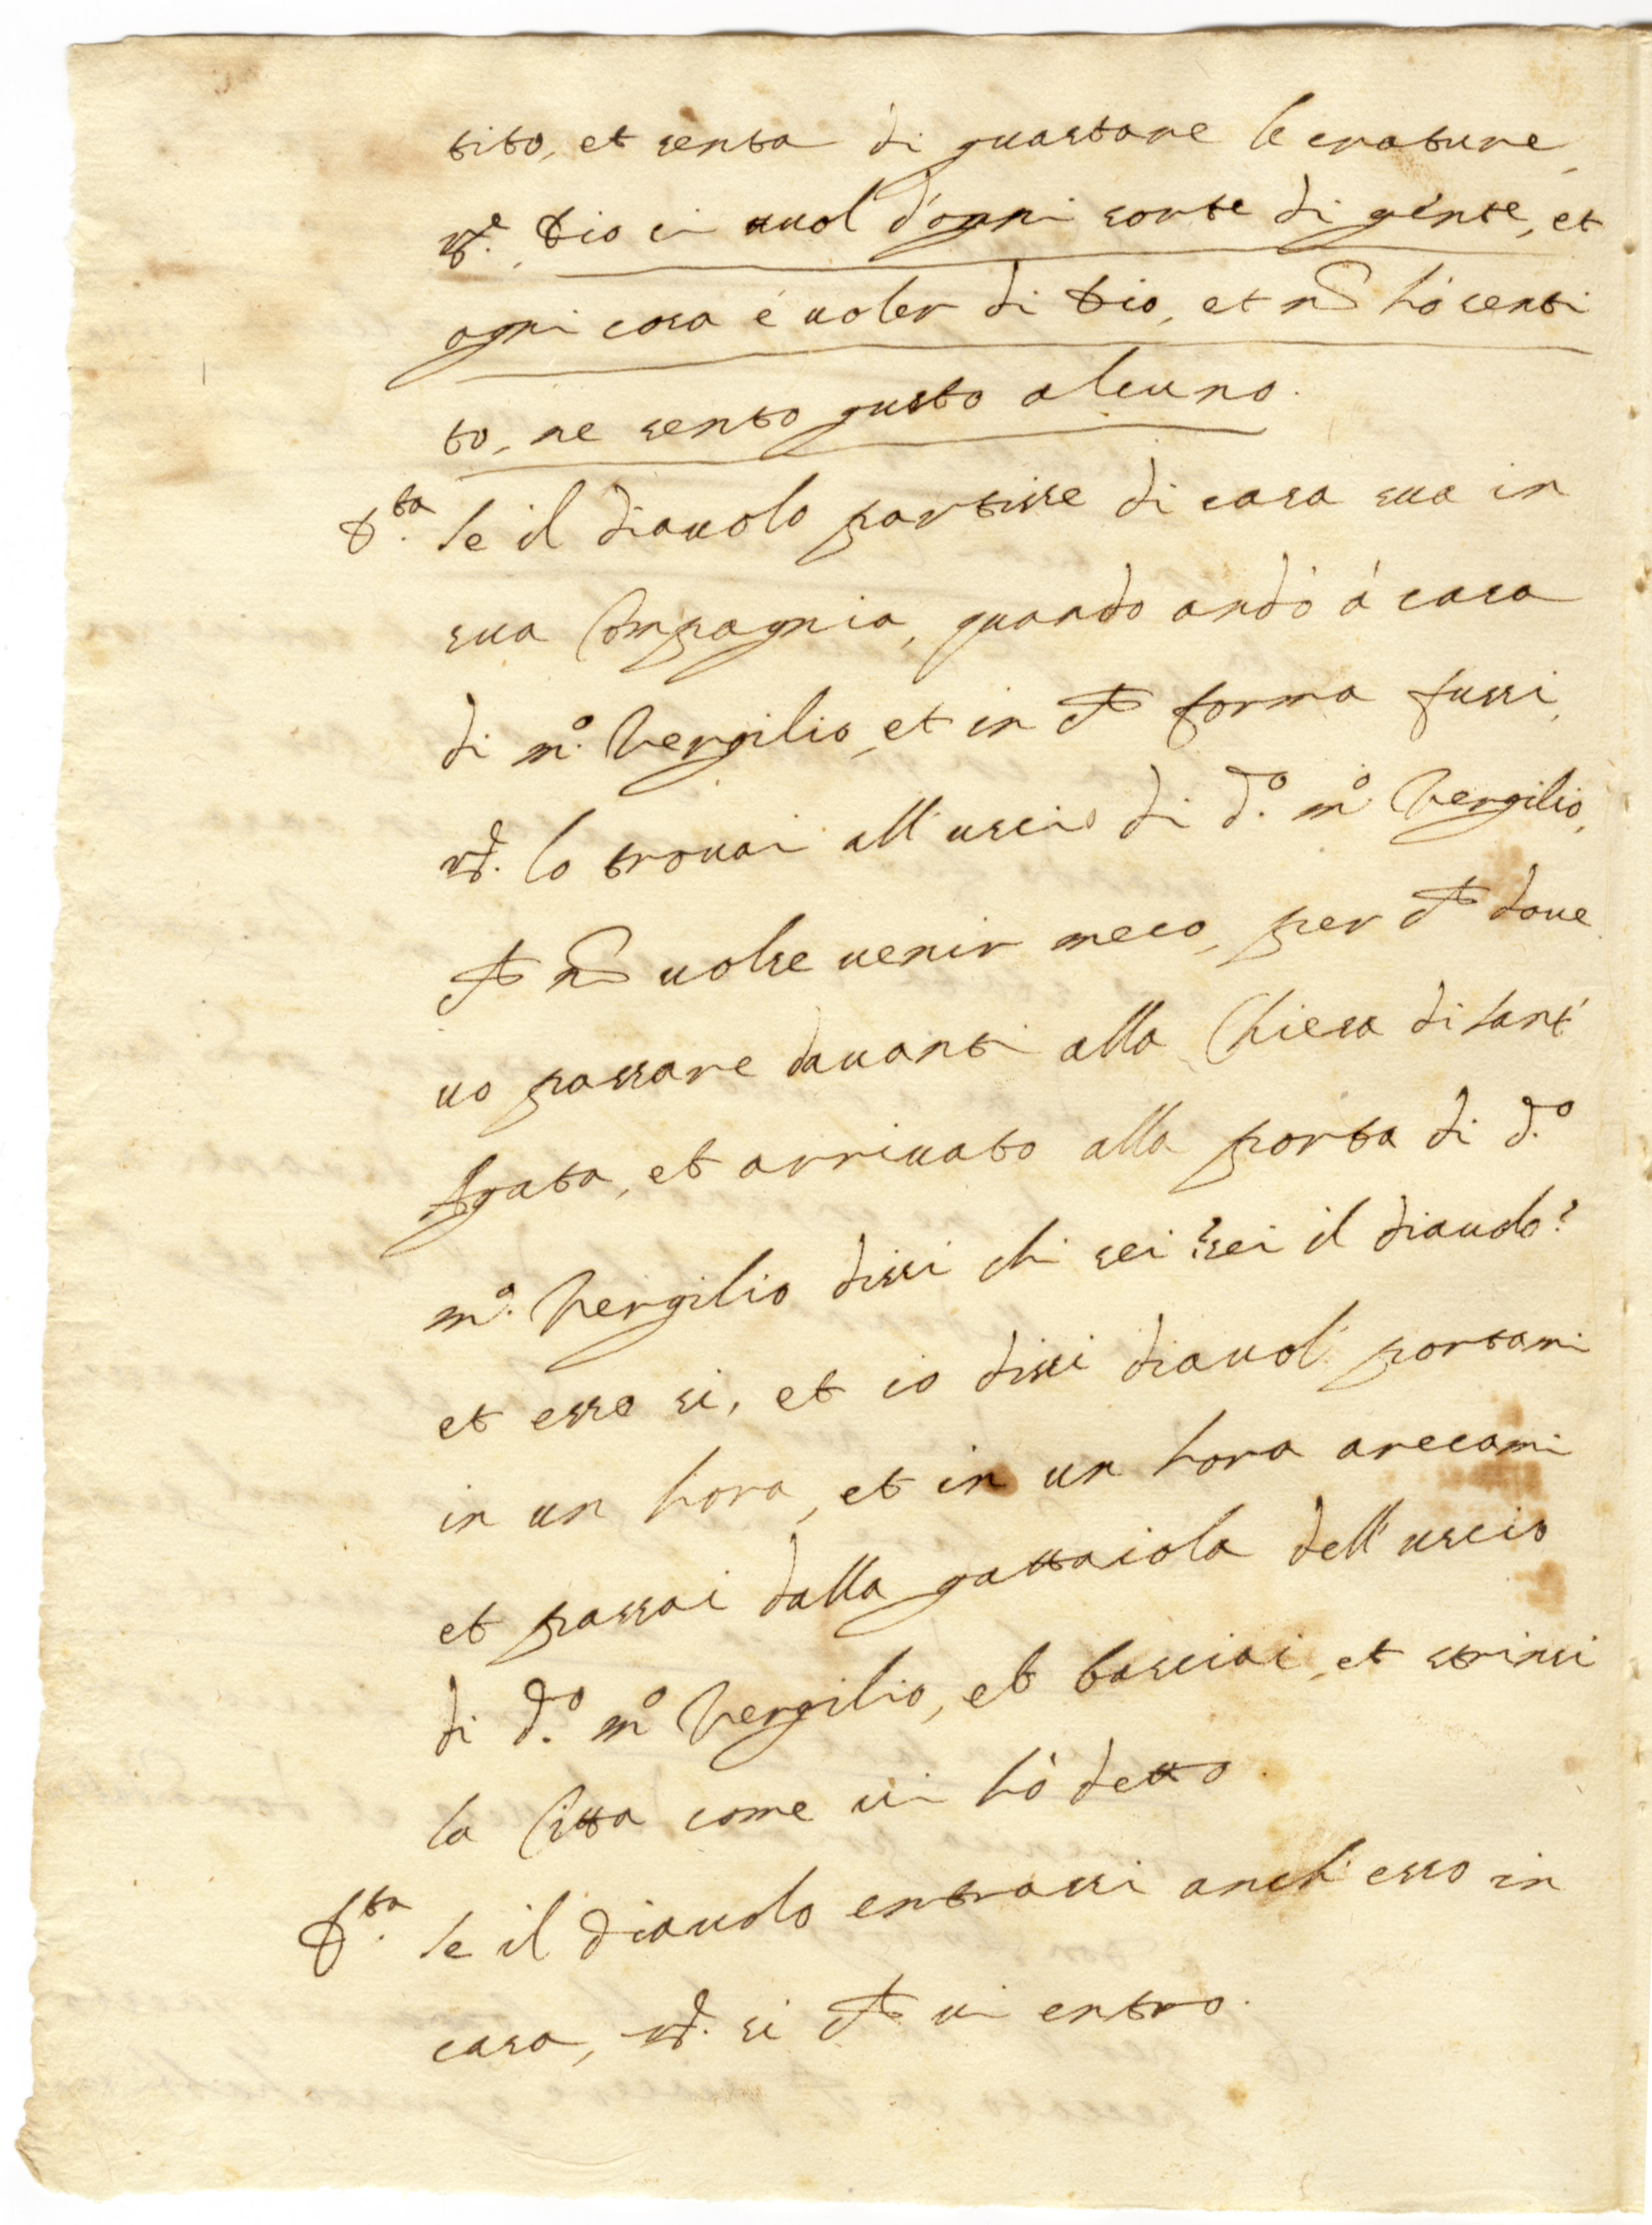 tito, et senta di guastare le crature,
R.e Dio ci vuol d'ogni sorte di gente, et
ogni cosa é voler di Dio, et nō hó senti
to, ne sento gusto alcuno.
D.ta Se il diavolo partisse di casa sua in
sua Compagnia, quando andó á casa
di m.o Vergilio, et in che forma fussi,
Rd. lo trovai all'uscio di d.o m.o Vergilio,
che nō volse venir meco, per che dove
vo passare davanti alla Chiesa di Sant'
Agata, et arrivato alla porta di d.o
m.o Vergilio dissi chi sei? sei il diavolo?
et esso si, et io dissi diavol' portami
in un hora, et in un hora arecami
et passai dalla gattaiola dell'uscio
di d.o m.o Vergilio, et basciai, et strinsi
la Citta come vi hó detto.
D.ta Se il diavolo entrassi anch'esso in
casa, Rd. si che vi entro.